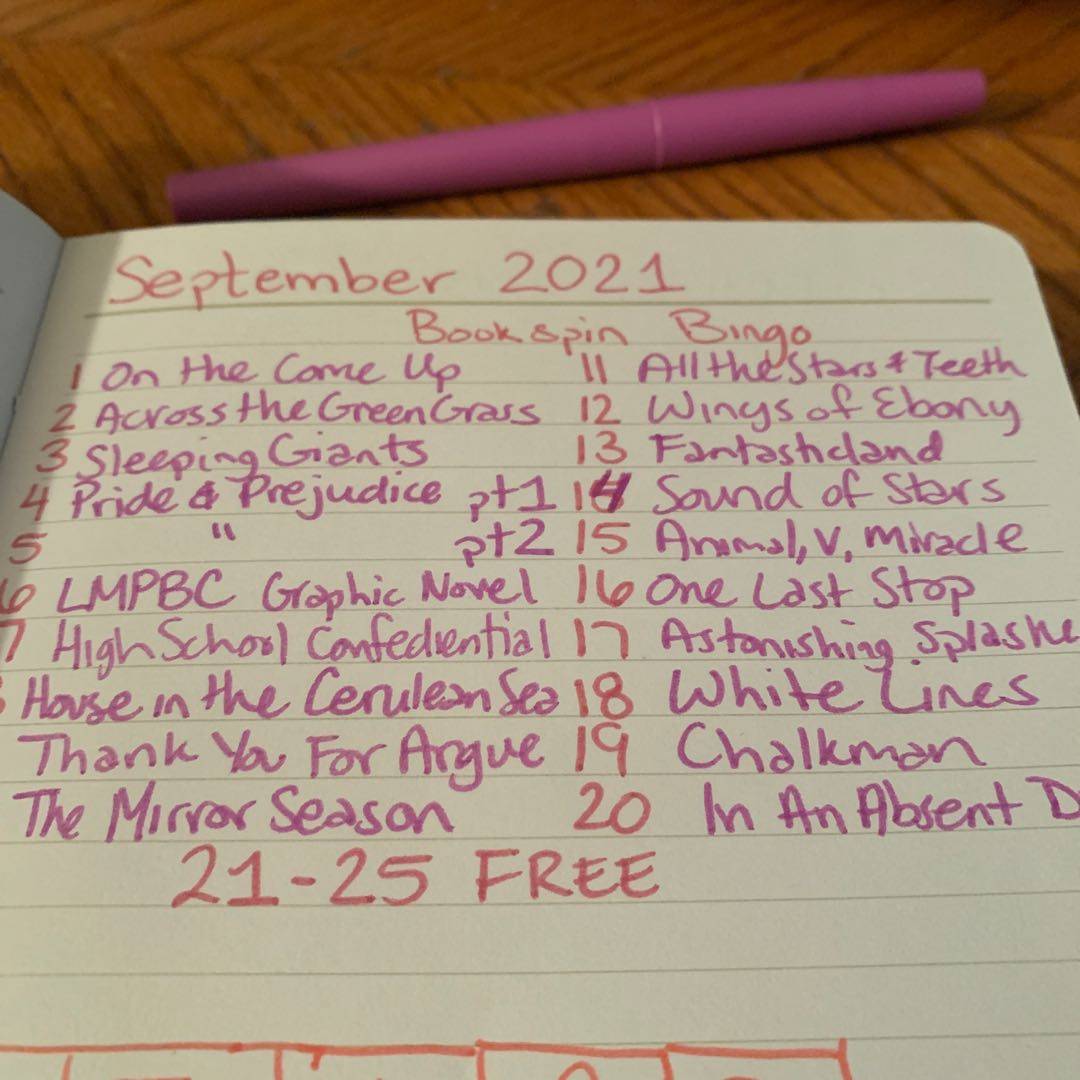 September 2021
Bookspin Bingo
1 On the Come Up
2 Across the Green Grass
3 Sleeping Giants
4 Pride & Prejudice pt1
5 " pt2
6 LMPBC Graphic Novel
7 High School Confediential
House in the Cerulean Sea
Thank You For Argue
The Mirror Season
11 All the Stars & Teeth
12 Wings of Ebony
13 Fantasticland
14 Sound of Stars
15 Animal, V, Miracle
16 One Last Stop
17 Astonishing Splashe
18 White Lines
19 Chalkman
20 In An Absent D
21-25 FREE